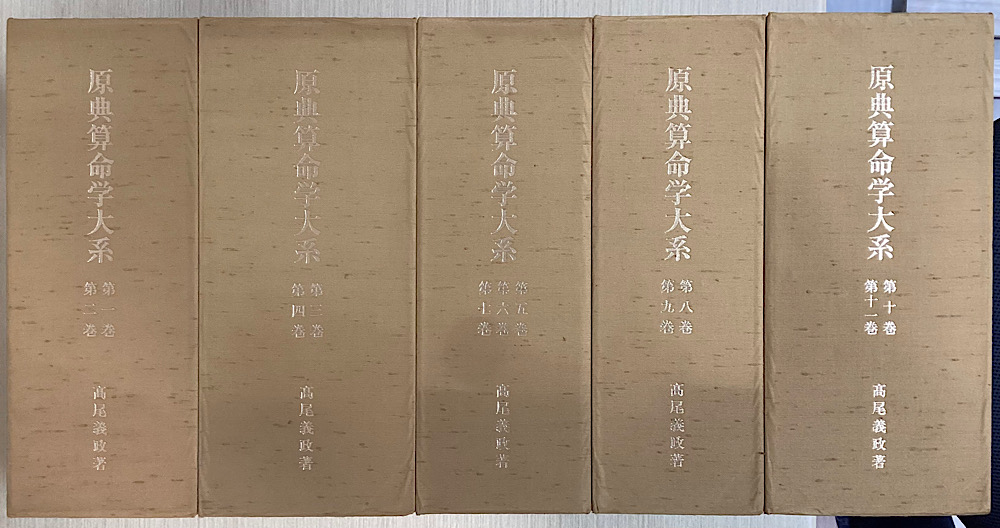 原典算命学大系
第一巻
第二巻
髙尾義政著
原典算命学大系
第三巻
第四巻
髙尾義政著
原典算命学大系
第五巻
第六巻
第七巻
髙尾義政著
原典算命学大系
第八巻
第九巻
髙尾義政著
原典算命学大系
第十巻
第十一巻
髙尾義政著